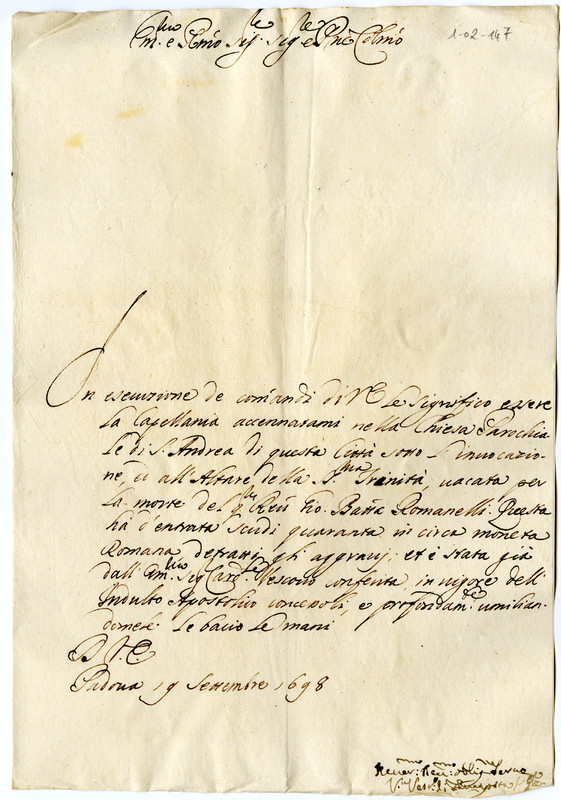 Em.mo e Rmo Sig.re Sig.re e Pne Colmo
1-02-147
In esecuzione de comandi di V E le significo essere
la Capellania accennatami nella Chiesa Parochia
le di S. Andrea di questa Città sotto l'invocazio-
ne, ed all'Altare della S.ma Trinità, vacata per
la morte del q. Reu Gio. Batta Romanelli. Questa
hà d'entrata scudi quaranta in circa moneta
Romana, detratti gli aggravj; et è stata già
dall' Em.mo Sig. Card.le Vescovo conferita, in vigore dell'
Indulto Apostolico concessoli, e profondam.te umilian-
domele le bacio le mani
D. V. E.
Padova 19 Settembre 1698